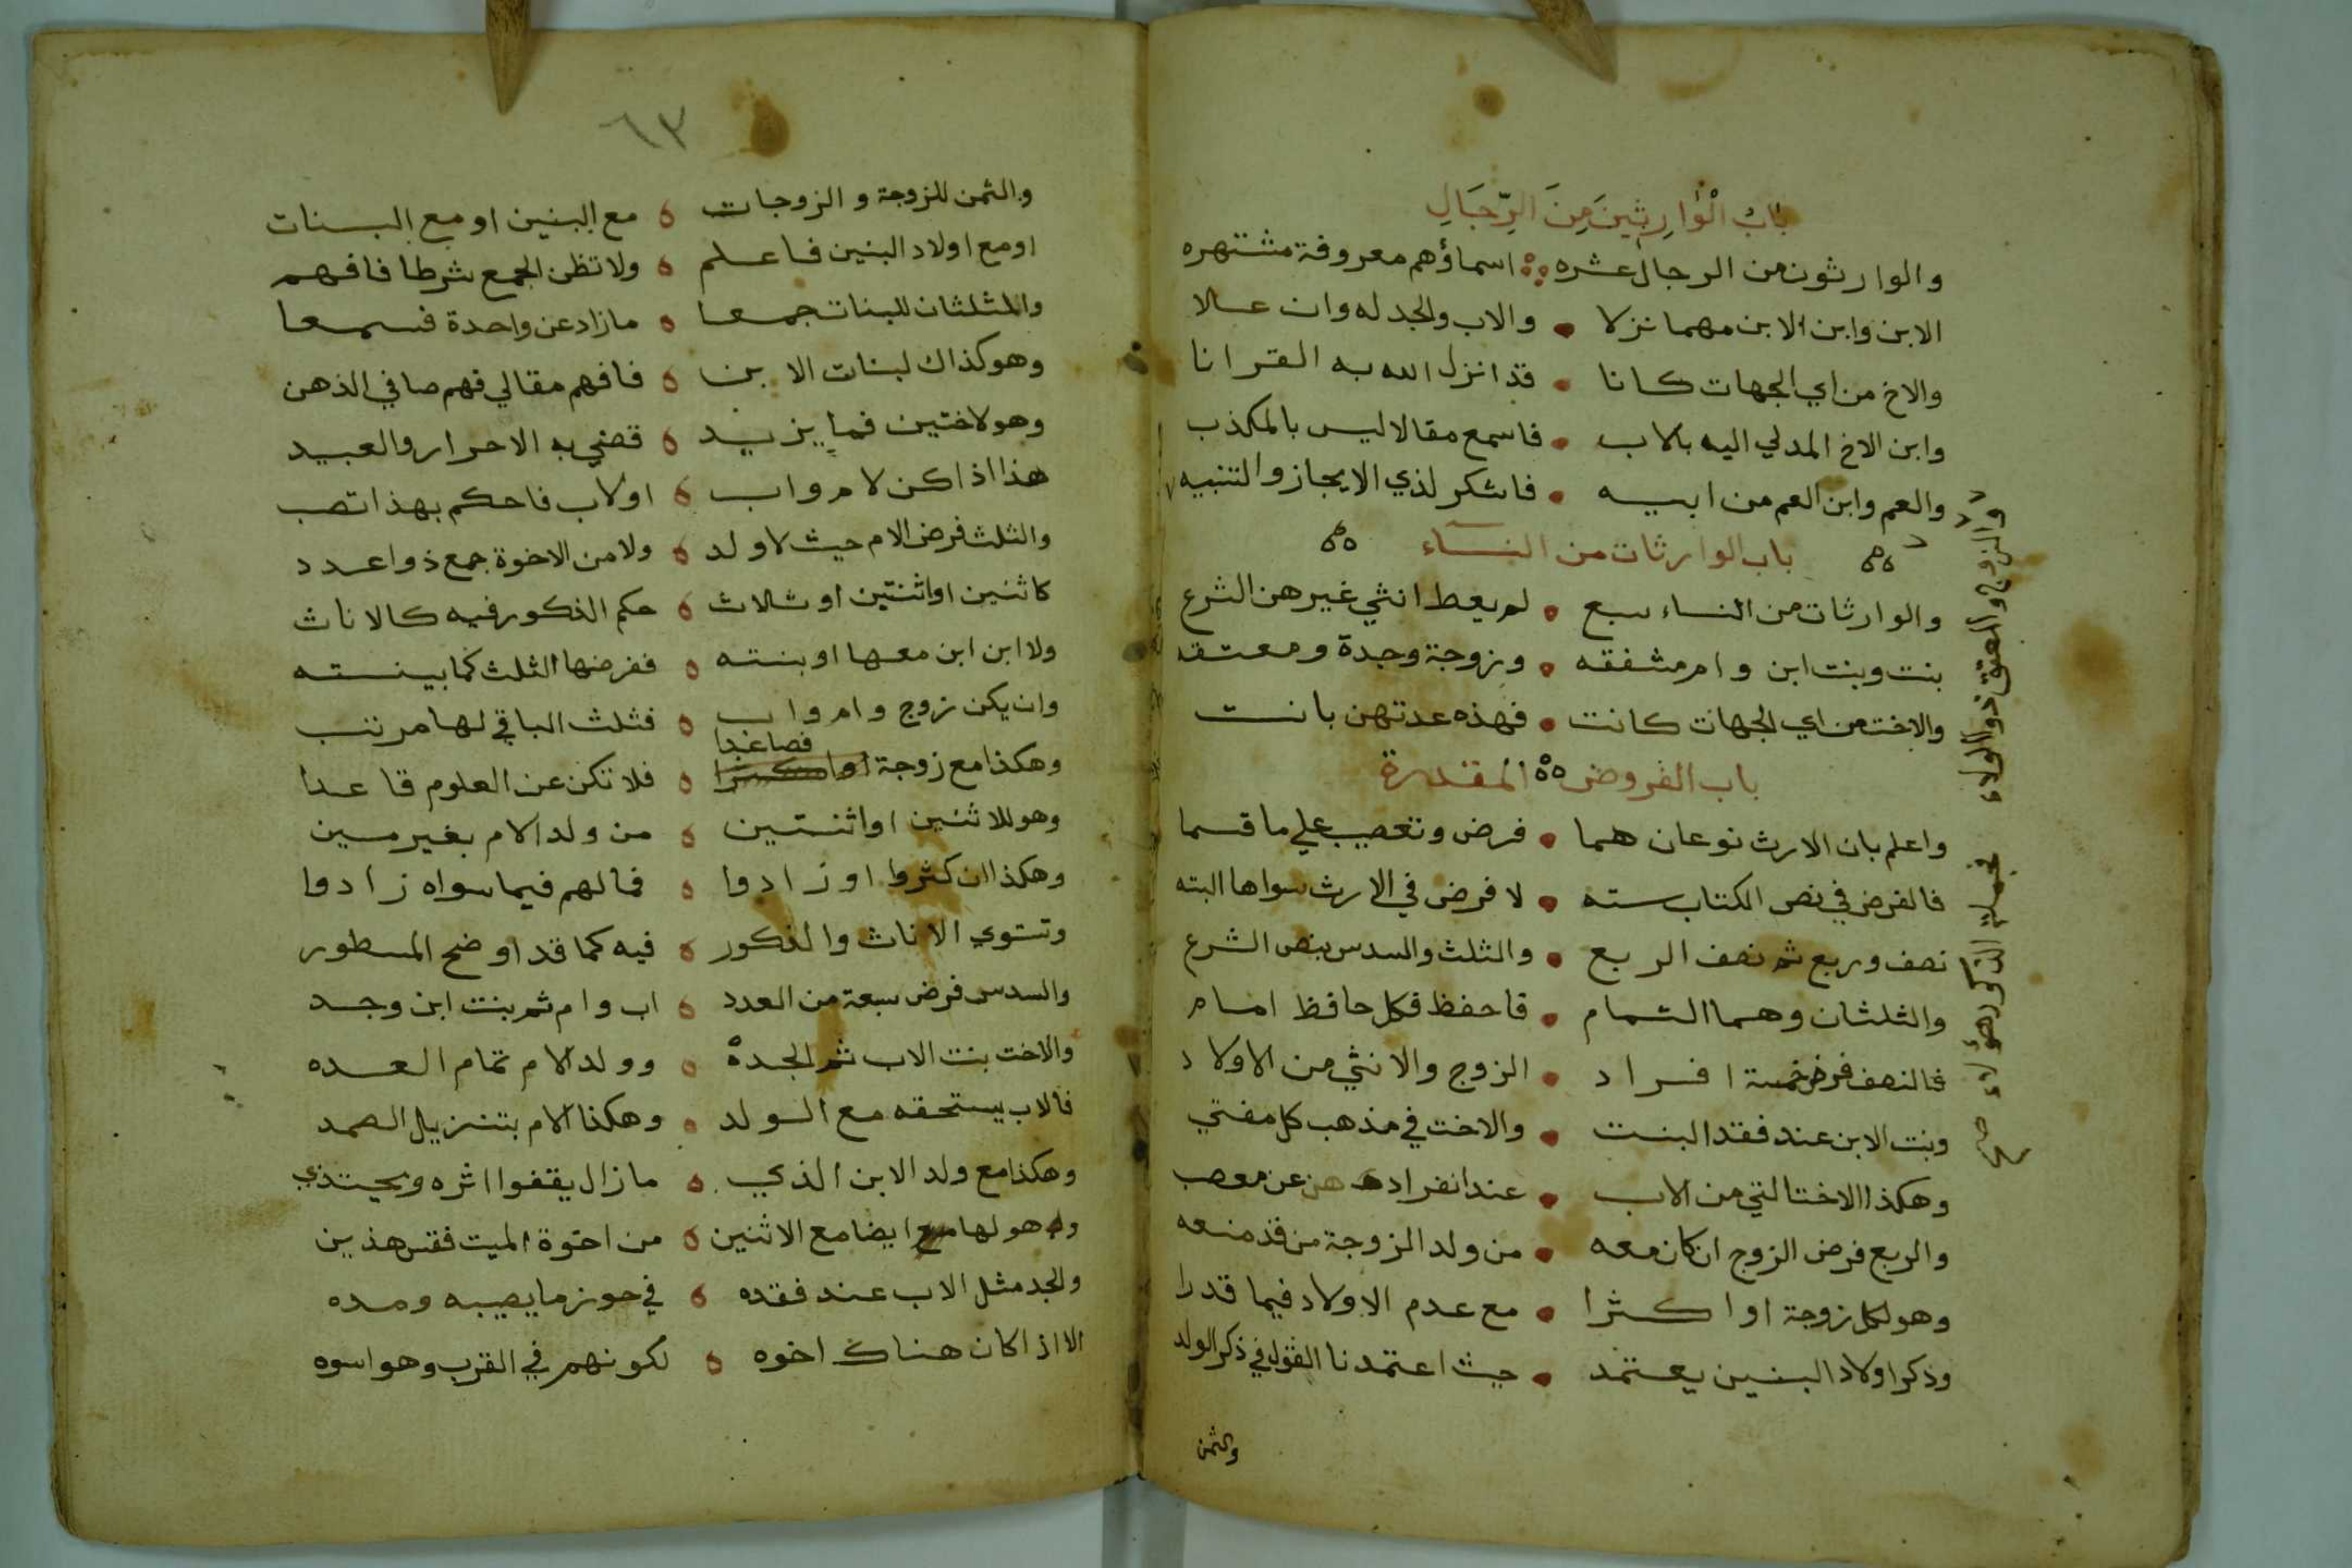 باب الوارثين من الرجال
والوارثون من الرجال عشره اسماؤهم معروفة مشتهره
الابن وابن الابن مهما نزلا والاب والجد له وان علا
والاخ من اي الجهات كانا قد انزل الله به القرانا
وابن الاخ المدلي اليه بالاب فاسمع مقالا ليس بالمكذب
والعم وابن العم من ابيه فاشكر لذي الايجاز والتنبيه
والزوج والمعتق ذو الولاء فجملة الذكور هؤلاء صح
باب الوارثات من النساء
والوارثات من النساء سبع لم يعط انثي غيرهن الشرع
بنت وبنت ابن وام مشفقه وزوجة وجدة ومعتقه
والاخت من اي الجهات كانت فهذه عدتهن بانت
باب الفروض المقدرة
واعلم بان الارث نوعان هما فرض وتعصيب علي ما قسما
فالفرض في نص الكتاب سته لا فرض في الارث سواها البته
نصف وربع ثم نصف الربع والثلث والسدس بنص الشرع
والثلثان وهما التمام فاحفظ فكل حافظ امام
فالنصف فرض خمسة افراد الزوج والانثي من الاولاد
وبنت الابن عند فقد البنت والاخت في مذهب كل مفتي
وهكذا الاخت التي من الاب عند انفرادهن عن معصب
والربع فرض الزوج ان كان معه من ولد الزوجة من قد منعه
وهو لكل زوجة او اكثرا مع عدم الاولاد فيما قدرا
وذكر اولاد البنين يعتمد حيث اعتمدنا القول في ذكر الولد
والثمن
٦٣
والثمن للزوجة والزوجات مع البنين او مع البنات
او مع اولاد البنين فاعلم ولا تظن الجمع شرطا فافهم
والثلثان للبنات جمعا ما زاد عن واحدة فسمعا
وهو كذاك لبنات الابن فافهم مقالي فهم صافي الذهن
وهو لاختين فما يزيد قضي به الاحرار والعبيد
هذا اذا كن لام واب او لاب فاحكم بهذا تصب
والثلث فرض الام حيث لا ولد ولا من الاخوة جمع ذوا عدد
كاثنين او اثنتين او ثلاث حكم الذكور فيه كالاناث
ولا ابن ابن معها او بنته ففرضها الثلث كما بينته
وان يكن زوج وام واب فثلث الباقي لها مرتب
وهكذا مع زوجة فصاعدا فلا تكن عن العلوم قاعدا
وهو للاثنين او اثنتين من ولد الام بغير مين
وهكذا ان كثروا او زادوا فما لهم فيما سواه زادوا
وتستوي الاناث والذكور فيه كما قد اوضح المسطور
والسدس فرض سبعة من العدد اب وام ثم بنت ابن وجد
والاخت بنت الاب ثم الجدة وولد الام تمام العده
فالاب يستحقه مع الولد وهكذا الام بتنزيل الصمد
وهكذا مع ولد الابن الذي ما زال يقفوا اثره ويحتذي
وهو لها ايضا مع الاثنين من اخوة الميت فقس هذين
والجد مثل الاب عند فقده في حوز ما يصيبه ومده
الا اذا كان هناك اخوه لكونهم في القرب وهو اسوه